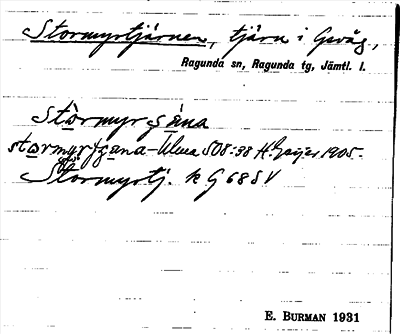 Stormyrtjärnen, tjärn i Gevåg,
Ragunda sn, Ragunda tg, Jämtl. l.
stòrmyr
stormyr -Ulvsa 508:38 H. Geijer 1905.
Stormyrtj. k G 68 SV
E. BURMAN 1931